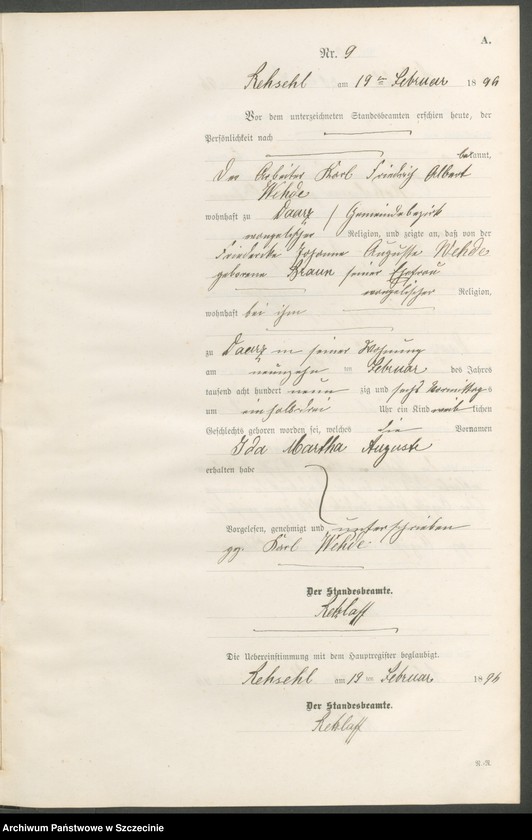 A.
Nr. 9
Rehsehl am 19ten Februar 1896
Vor dem unterzeichneten Standesbeamten erschien heute, der
Persönlichkeit nach
bekannt,
Der Arbeiter Karl Friedrich Albert
Wehde
wohnhaft zu Daarz / Gemeindebezirk
evangelischer Religion, und zeigte an, daß von der
Friedericke Johanne Auguste Wehde
geborene Braun seiner Ehefrau
evangelischer Religion,
wohnhaft bei ihm
zu Daarz in seiner Wohnung
am neunzehn ten Februar des Jahres
tausend acht hundert neun zig und sechs Vormittags
um einhalb drei Uhr ein Kind weib lichen
Geschlechts geboren worden sei, welches die Vornamen
Ida Martha Auguste
erhalten habe
Vorgelesen, genehmigt und unterschrieben
gez. Karl Wehde
Der Standesbeamte.
Retzlaff
Die Uebereinstimmung mit dem Hauptregister beglaubigt.
Rehsehl am 19ten Februar 1896
Der Standesbeamte.
Retzlaff
Archiwum Państwowe w Szczecinie